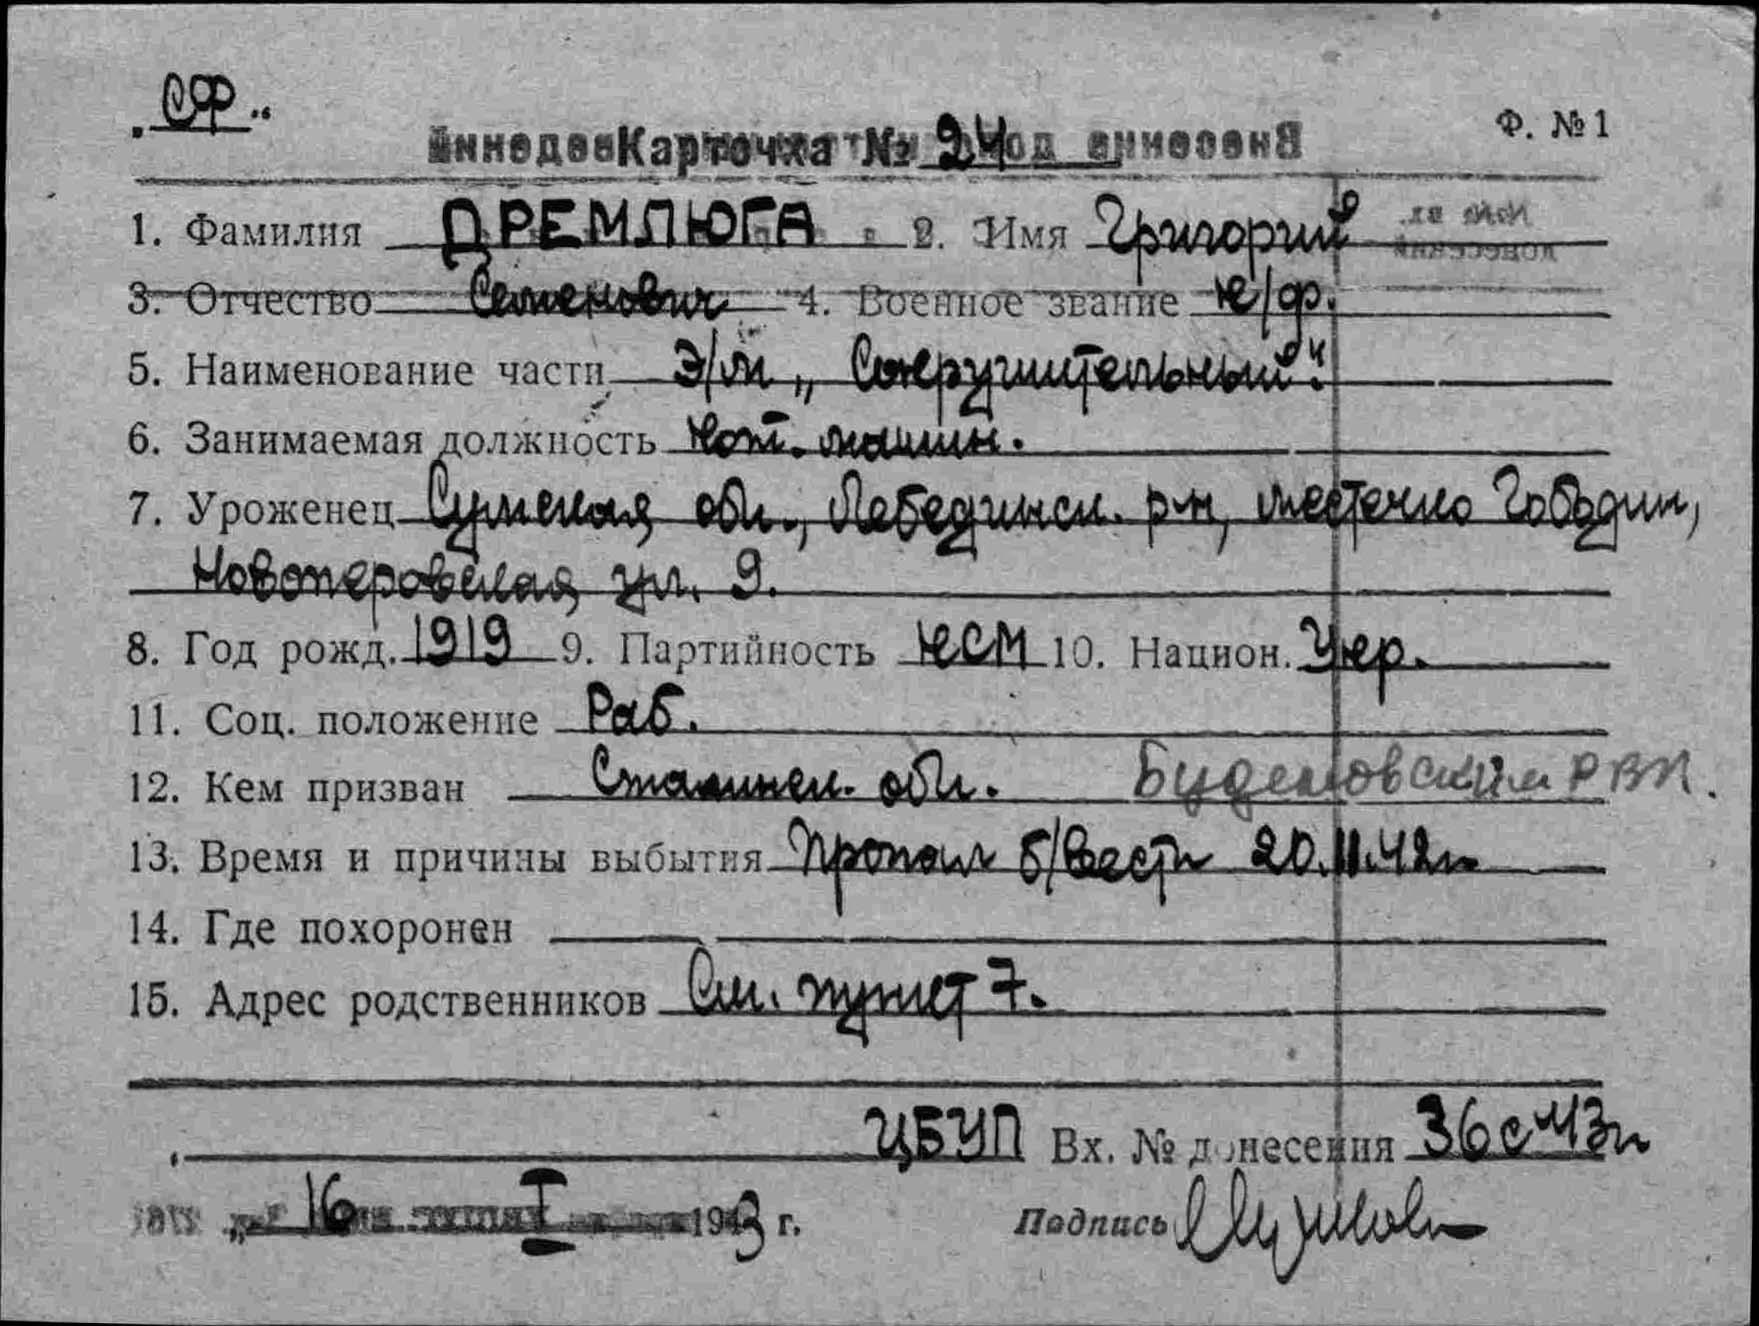 СФ
Ф. №1
Карточка № 24
1. Фамилия ДРЕМЛЮГА 2. Имя Григорий
3. Отчество Семенович 4. Военное звание к/ф.
5. Наименование части Э/м „Сокрушительный".
6. Занимаемая должность кот. машин.
7. Уроженец Сумская обл., Лебединск. р-н, местечко
Новоперовская ул. 9.
8. Год рожд. 1919 9. Партийность КСМ 10. Национ. Укр.
11. Соц. положение Раб.
12. Кем призван Сталинск. обл. Буденовским РВК.
13. Время и причины выбытия Пропал б/вести 20.11.42г
14. Где похоронен
15. Адрес родственников См. пункт 7.
ЦБУП Вх. № донесения 36с 43г
„16 I 1943 г. Подпись